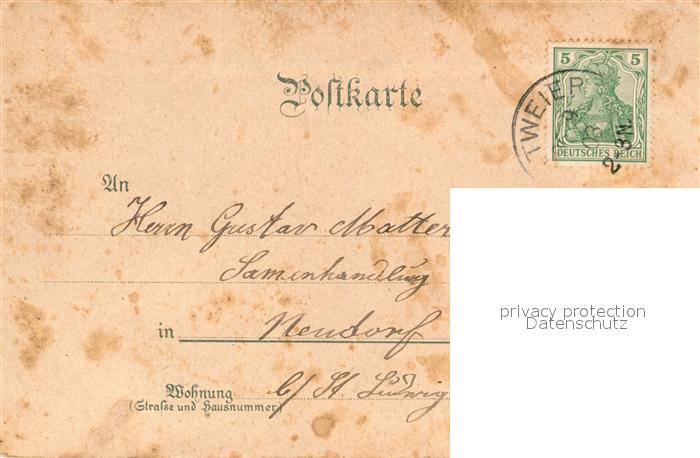 Postkarte
5 5
DEUTSCHES REICH
TWEIER
9
03
2-3N.
An
Herrn Gustav Matter
Samenhandlung
in Neudorf
Wohnung b/ St. Ludwig
(Straße und Hausnummer)
privacy protection
Datenschutz